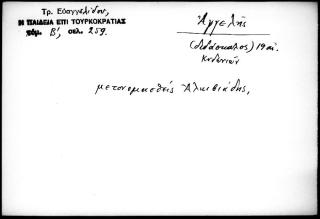 Τρ. Εὐαγγελίδου,
Η ΠΑΙΔΕΙΑ ΕΠΙ ΤΟΥΡΚΟΚΡΑΤΙΑΣ
τόμ. Β', σελ. 259.
Ἀγγελῆς
(διδάσκαλος) 19 αἰ.
Κυδωνιῶν
μετονομασθεὶς Ἀλκιβιάδης,